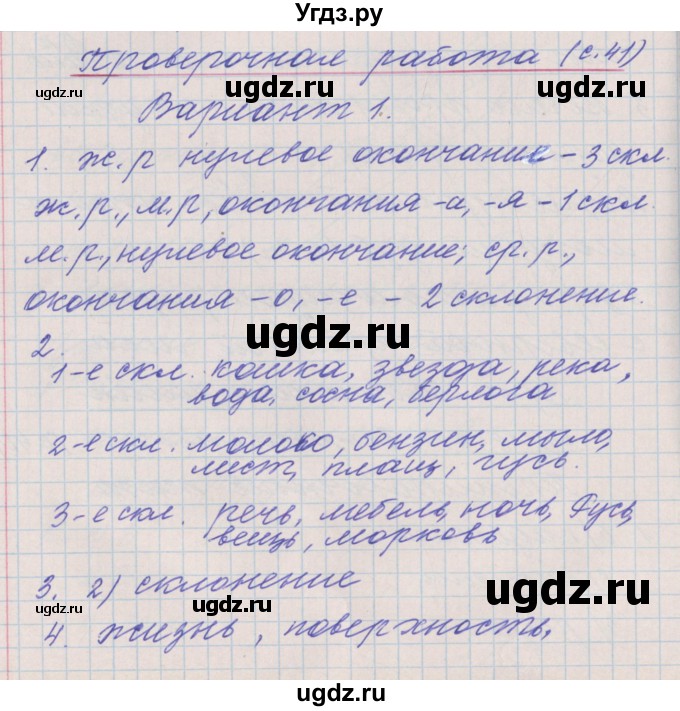 Угдз.ру
Проверочная работа (с.41)
Вариант 1.
1. ж.р нулевое окончание - 3 скл.
ж.р., м.р, окончания -а, -я - 1 скл.
м.р., нулевое окончание; ср.р.,
окончания -о, -е - 2 склонение.
2.
1-е скл. кошка, звезда, река,
вода, сосна, берлога
2-е скл. молоко, бензин, мыло,
лист, плащ, гусь.
3-е скл. речь, мебель, ночь, Русь,
вещь, морковь
3. 2) склонение
4. жизнь, поверхность.
ugdz.ru
ugdz.ru
ugdz.ru
ugdz.ru
ugdz.ru
ugdz.ru
ugdz.ru
ugdz.ru
ugdz.ru
ugdz.ru
ugdz.ru
ugdz.ru